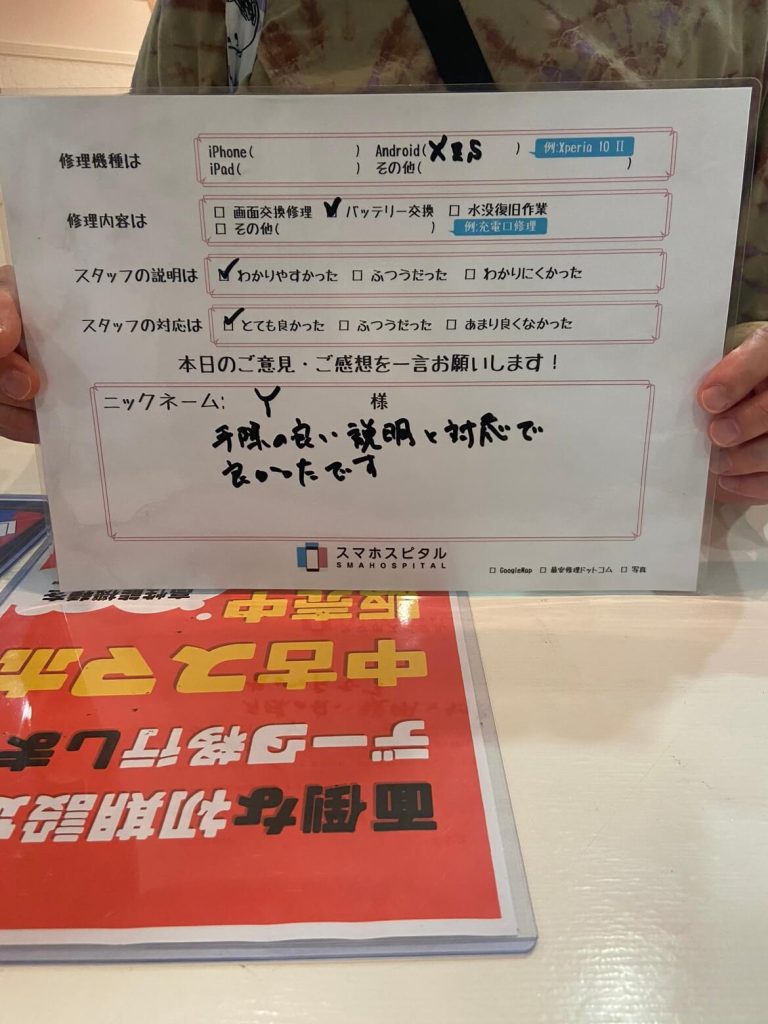 修理機種は
iPhone( ) Android( XZS ) 例:Xperia 10 II
iPad( ) その他( )
修理内容は
□ 画面交換修理 ☑ バッテリー交換 □ 水没復旧作業
□ その他( ) 例:充電口修理
スタッフの説明は ☑ わかりやすかった □ ふつうだった □ わかりにくかった
スタッフの対応は ☑ とても良かった □ ふつうだった □ あまり良くなかった
本日のご意見・ご感想を一言お願いします!
ニックネーム: Y 様
手際の良い説明と対応で
良かったです
スマホスピタル
SMAHOSPITAL
□ GoogleMap □ 最安修理ドットコム □ 写真
面倒な初期設定
データ移行しま
中古スマホ
販売中
高性能機種を